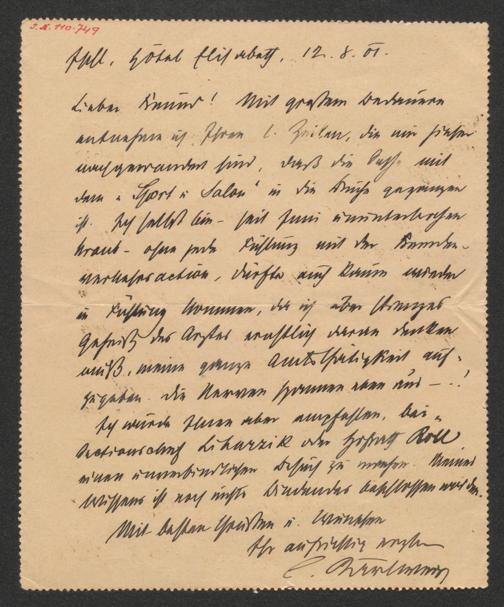 J.N. 110.749
Ischl, Hôtel Elisabeth, 12. 8. 01.
Lieber Freund! Mit großem Bedauern
entnehme ich Ihren l. Zeilen, die mir hieher
nachgewandert sind, daß die Sache mit
dem "Sport u. Salon" in die Brüche gegangen
ist. Ich selbst bin - seit Juni ununterbrochen
krank - ohne jede Fühlung mit der Fremden-
verkehrsaction, dürfte auch kaum wieder
in Fühlung kommen, da ich über strenges
Geheiß des Arztes ernstlich daran denken
muß, meine ganze Amtsthätigkeit auf-
zugeben. Die Nerven spannen eben aus - ..!
Ich würde Ihnen aber empfehlen, bei
Sectionschef Liharzik oder Hofrath Roll
einen unverbindlichen Besuch zu machen. Meines
Wissens ist noch nichts Bindendes beschlossen worden.
Mit besten Grüßen u. Wünschen
Ihr aufrichtig ergeb.
C. Karlweis